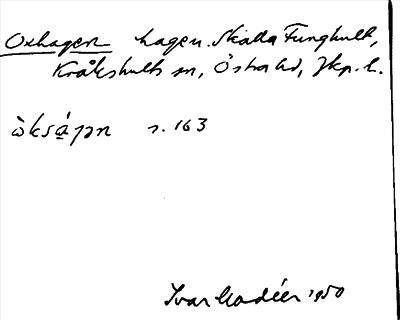 Oxhagen hagen. Skälla Funghult,
Kråkshults sn, Östra hd, Jkp. l.
òksáƞan s. 163
Ivar Modéer 1950